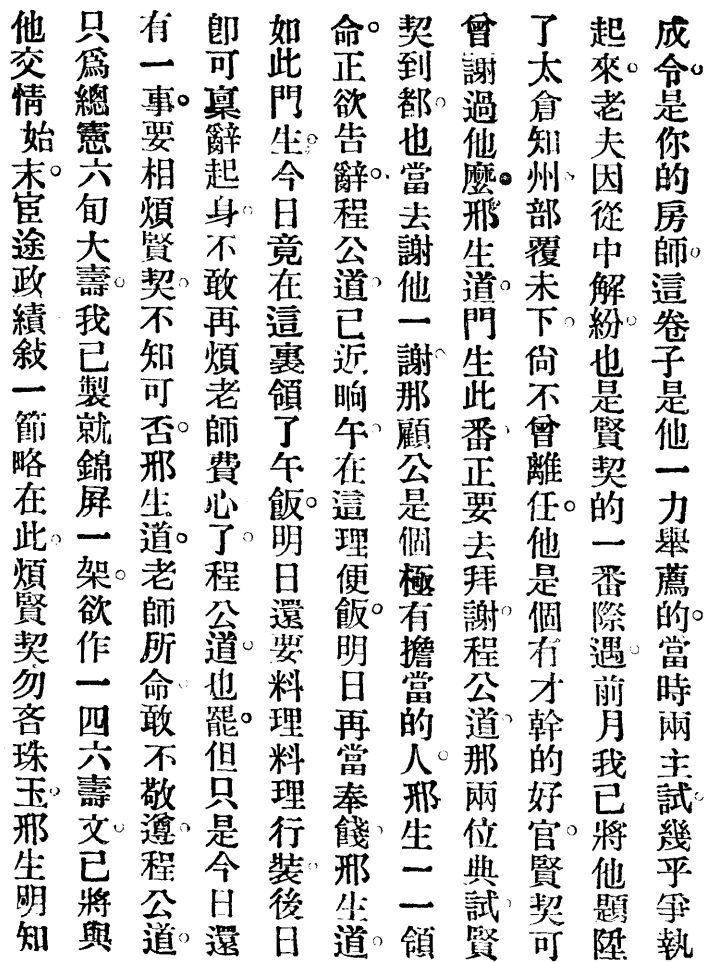 成令。是你的房師。這卷子是他一力舉薦的。當時兩主試。幾乎爭執
起來。老夫因從中解紛。也是賢契的一番際遇。前月我已將他題陞
了太倉知州、部覆未下。尙不曾離任。他是個有才幹的好官。賢契可
曾謝過他麼。邢生道。門生此番、正要去拜謝。程公道、那兩位典試、賢
契到都。也當去謝他一謝。那顧公是個極有擔當的人。邢生一一領
命。正欲告辭。程公道、已近晌午、在這理便飯。明日再當奉餞、邢生道。
如此門生。今日竟在這裏領了午飯。明日還要料理料理行裝。後日
卽可稟辭起身。不敢再煩老師費心了。程公道。也罷。但只是今日還
有一事。要相煩賢契。不知可否。邢生道。老師所命、敢不敬遵。程公道。
只爲總憲六旬大壽。我已製就錦屛一架。欲作一四六壽文。已將與
他交情始末。宦途政績敍一節略在此。煩賢契勿吝珠玉。邢生明知